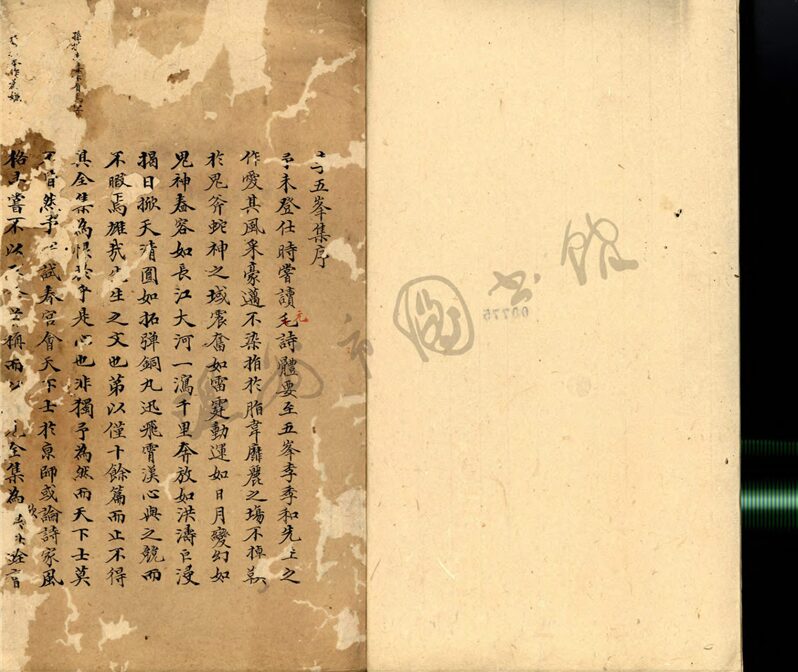 五峯集序
予未登仕時嘗讀毛詩體要至五峯李季和先生之
元
作愛其風采豪邁不染指於脂韋靡麗之塲不掉
於鬼斧蛇神之域震奮如雷霆動運如日月變幻如
鬼神舂容如長江大河一瀉千里奔放如洪濤巨浸
揭日掀天清圓如拓彈銅丸迅飛霄漢心與之競而
不暇焉雄哉先生之文也第以僅十餘篇而止不得
其全集為恨於乎是心也非獨予為然而天下士莫
不皆然予試春宮會天下士於京師或論詩家風
格未嘗不以 稱而以 全集為
圖書館
00775